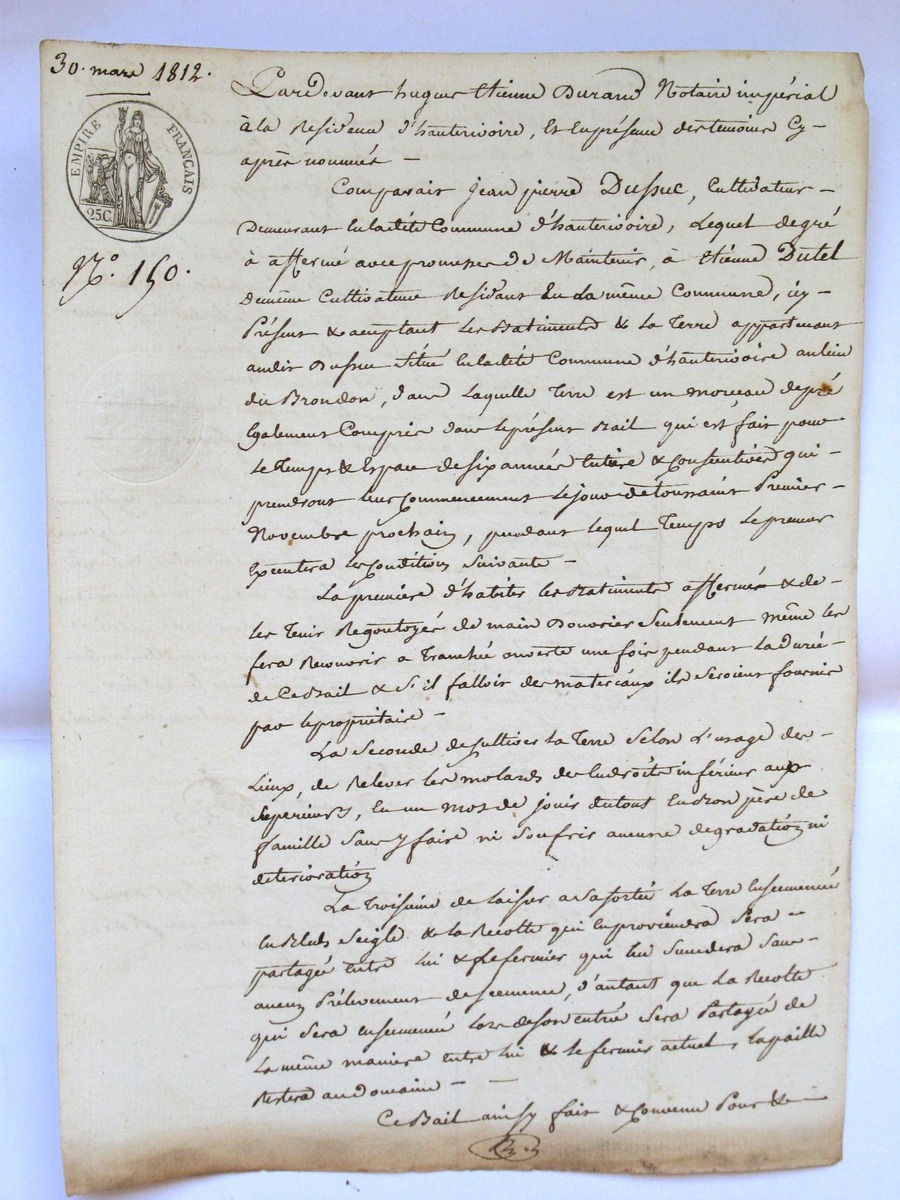 30. mars 1812.
EMPIRE FRANÇAIS
25C.
N.° 150.
Pardevant hugues Etienne Durand Notaire impérial
à la Residence d'hauterivoire, Et Enprésence destemoins Cy-
après nommés -
Comparait Jean pierre Dussuc, Cultivateur -
Demeurant Enladite Commune d'hauterivoire, Lequel degré
à affermé avec promesse de Maintenir, à Etienne Dutel
demême Cultivateur Residant En La même Commune, icy-
Présent & acceptant Les Batiments & La Terre appartenant
audit Dussuc situé Enladite Commune d'hauterivoire aulieu
du Brondon, dans Laquelle Terre est un morceau depré
Egalement Compris dans leprésent Bail qui est fait pour
Le Temps & Espace desix années Entière & Consécutives qui-
prendront leur Commencement Lejour detoussaint Premier-
Novembre prochain, pendant lequel Temps le preneur
Executera les Conditions Suivante -
La première d'habiter les Batiments affermés & de-
les Tenir Regoutoyés de main Douvrier Seulement même les
fera Recouvrir a Tranchée ouverte une fois pendant La Durée-
de Ce Bail & S'il falloit des materiaux ils Seroient fournis
par lepropriétaire -
La Seconde deCultiver La Terre Selon L'usage des-
Lieux, de Relever les molards de Endroits inférieur aux
Superieurs, En un mot de jouir dutout En Bon père de
famille Sans y faire ni Soufrir aucune degradation ni
deterioration
La Troisieme de laisser a Sa sortie La Terre Ensemencée
En Bleds Seigle & La Recolte qui Enproviendra Sera -
partagée Entre lui & le fermier qui lui Succedera Sans-
aucun Prélevement de semence, d'autant que La Recolte
qui Sera ensemencée Lors deson entrée Sera Partagée de
La même maniere Entre lui & le fermier actuel, la paille
Restera au Domaine -
Ce Bail ainsy fait & Convenu Pour &